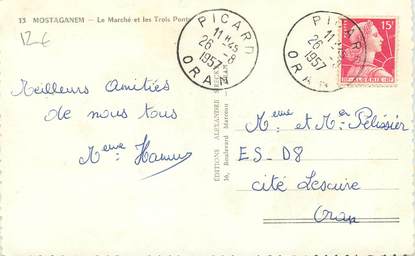 13 MOSTAGANEM - Le Marché et les Trois Ponts
12€
PICARD
11H45
26-8
1957
ORAN
PICARD
11H45
26-8
1957
ORAN
15F
ALGÉRIE
Meilleurs Amitiés
de nous tous
Mme
ÉDITIONS ALEXANDRE
16, Boulevard Marceau
Mme et Mr Pélissier
ES-D8
cité Lescure
Oran